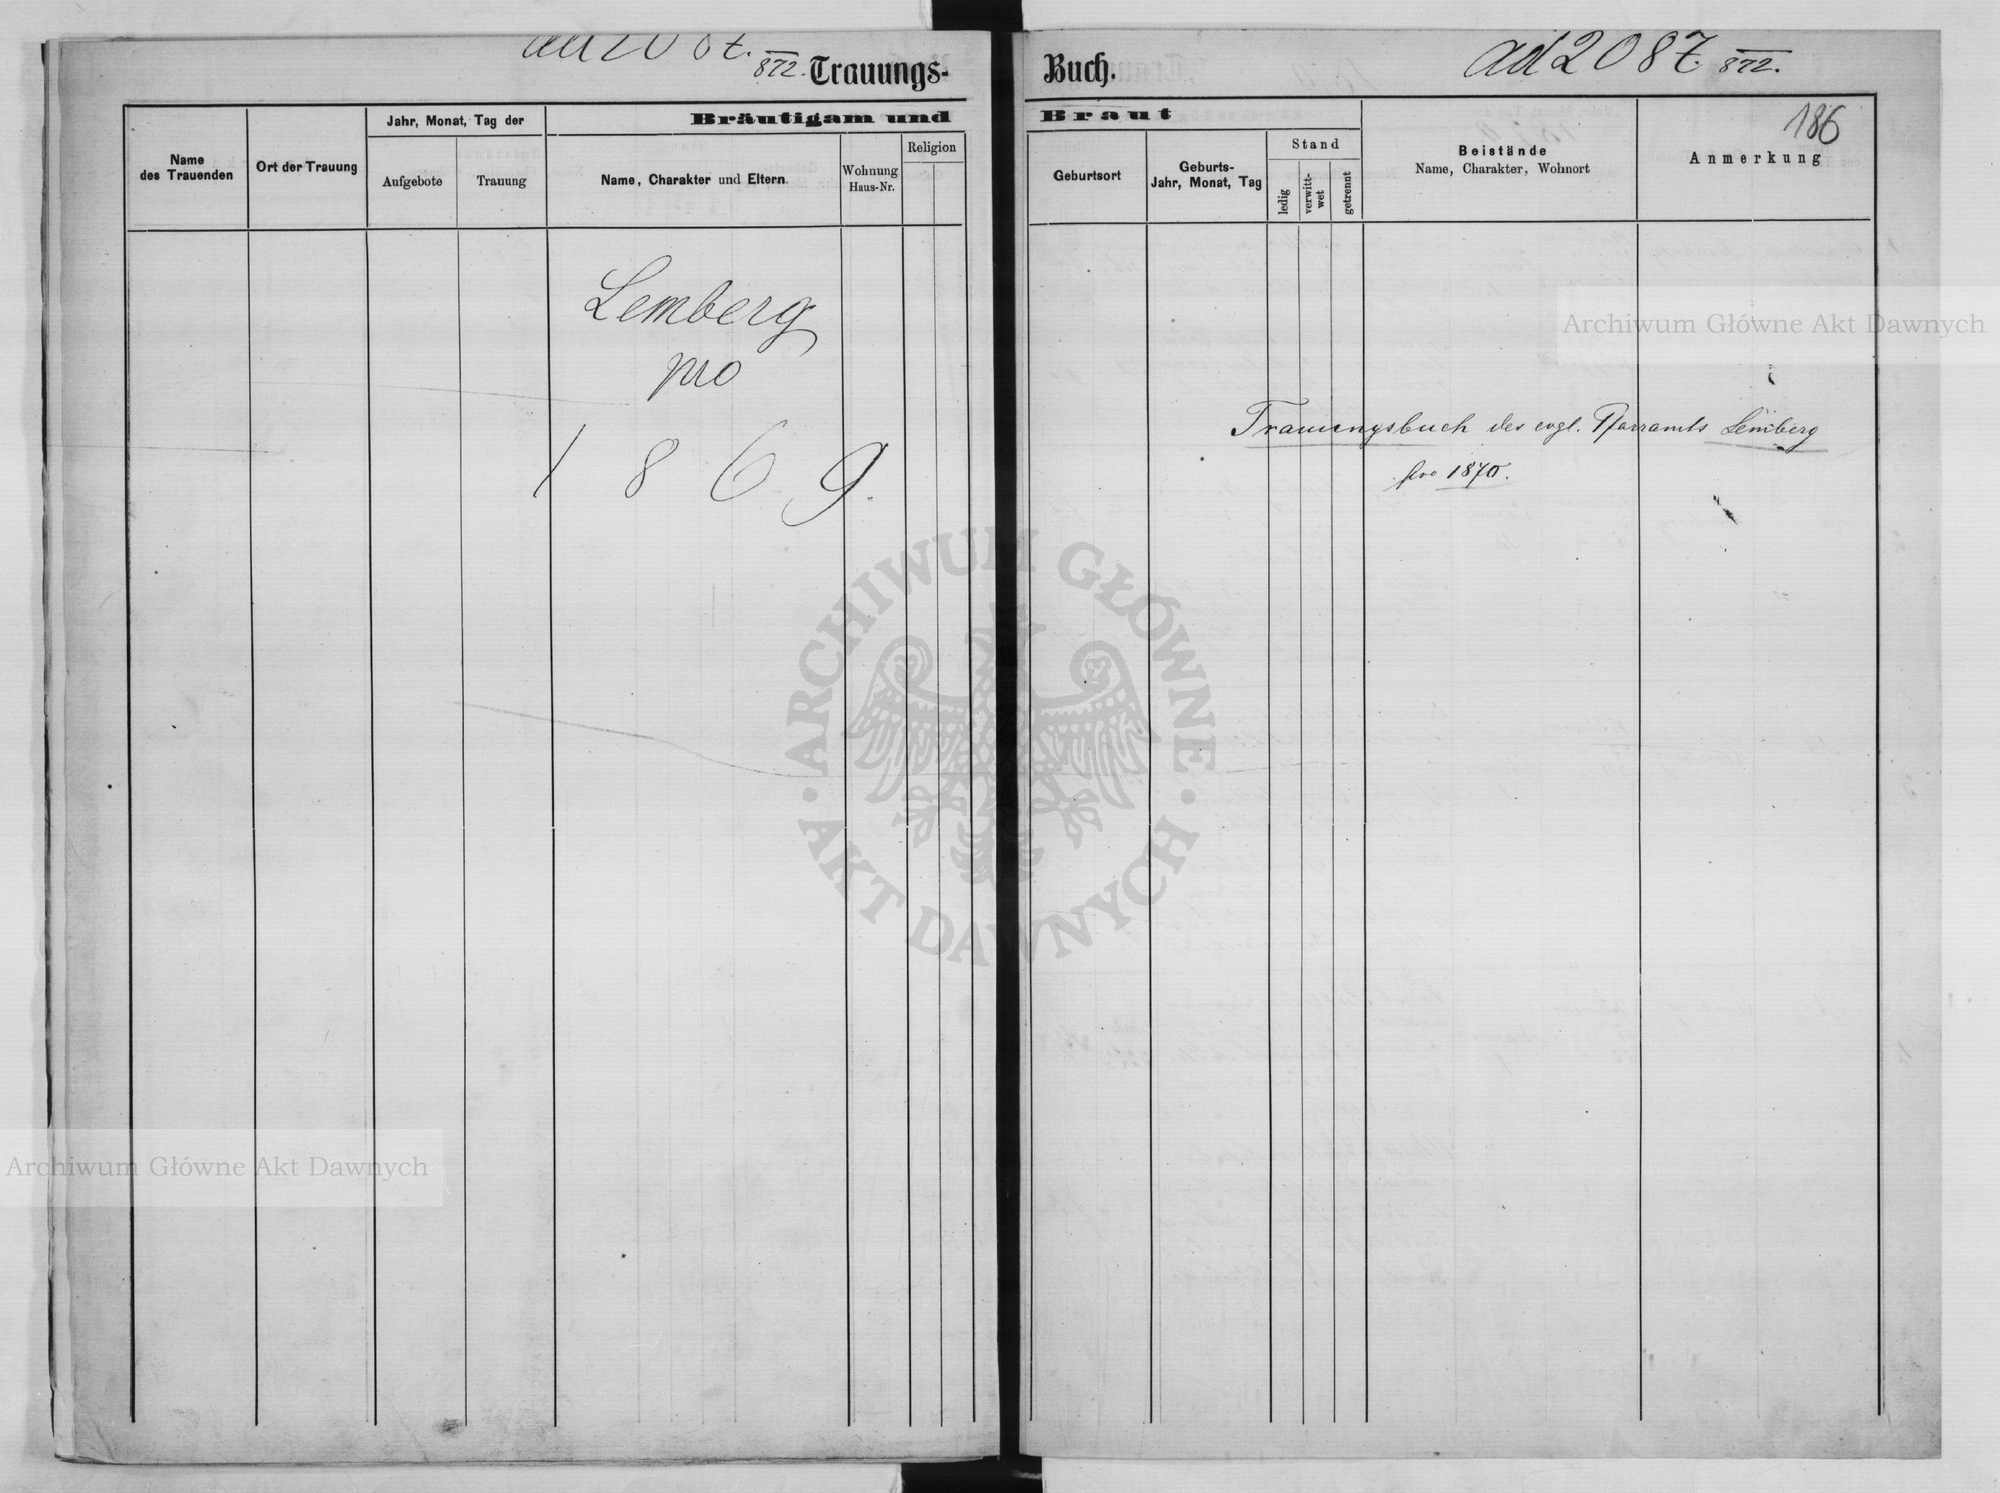 872. Trauungs-
Name des Trauenden
Ort der Trauung
Jahr, Monat, Tag der
Aufgebote
Trauung
Bräutigam und
Name, Charakter und Eltern.
Wohnung
Haus-Nr.
Religion
Lemberg
pro
1869.
Buch.
ad 2087. 872.
186
Braut
Geburtsort
Geburts-
Jahr, Monat, Tag
Stand
ledig
verwitt-
wet
getrennt
Beistände
Name, Charakter, Wohnort
Anmerkung
Trauungsbuch des evgl. Pfarramts Lemberg
pro 1870.
Archiwum Główne Akt Dawnych
ARCHIWUM GŁÓWNE · AKT DAWNYCH ·
Archiwum Główne Akt Dawnych